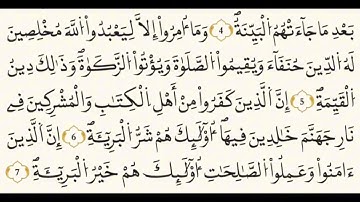 بَعْدِ مَا جَآءَتْهُمُ الْبَيِّنَةُۖ 4 وَمَآ أُمِرُوٓاْ إِلَّا لِيَعْبُدُواْ اُ۬للَّهَ مُخْلِصِينَ
لَهُ اُ۬لدِّينَ حُنَفَآءَ وَيُقِيمُواْ اُ۬لصَّلَوٰةَ وَيُوتُواْ اُ۬لزَّكَوٰةَۖ وَذَٰلِكَ دِينُ
اُ۬لْقَيِّمَةِۖ 5 إِنَّ اَ۬لذِينَ كَفَرُواْ مِنْ أَهْلِ اِ۬لْكِتَٰبِ وَالْمُشْرِكِينَ فِے
نَارِ جَهَنَّمَ خَٰلِدِينَ فِيهَآۖ أُوْلَٰٓئِكَ هُمْ شَرُّ اُ۬لْبَرِيٓـَٔةِۖ 6 إِنَّ اَ۬لذِينَ
ءَامَنُواْ وَعَمِلُواْ اُ۬لصَّٰلِحَٰتِ أُوْلَٰٓئِكَ هُمْ خَيْرُ اُ۬لْبَرِيٓـَٔةِۖ 7